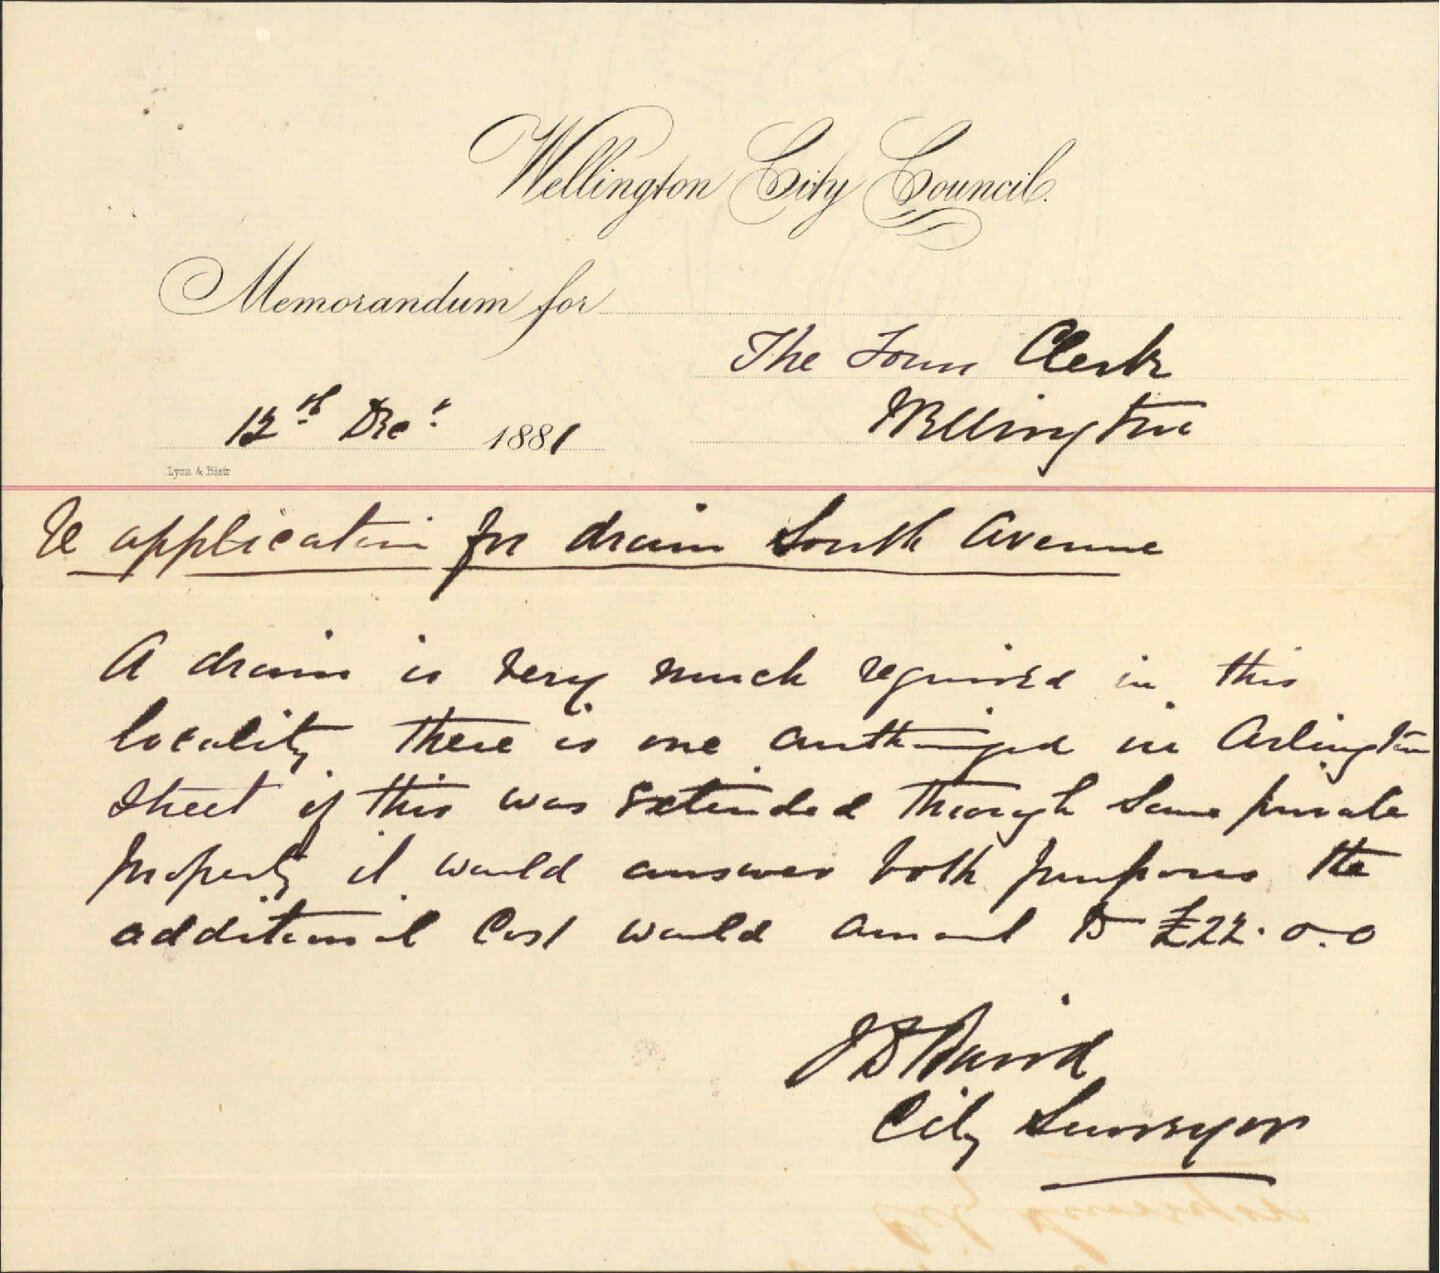 Wellington City Council.
Memorandum for
The Town Clerk
Wellington
12th Decr 1881
Lyon & Blair
Re application for drain South Avenue
A drain is very much required in this
locality there is one authorized in Arlington
Street if this was extended through some private
property it would answer both purposes the
additional Cost would amount to £22.0.0
J D Baird
City Surveyor